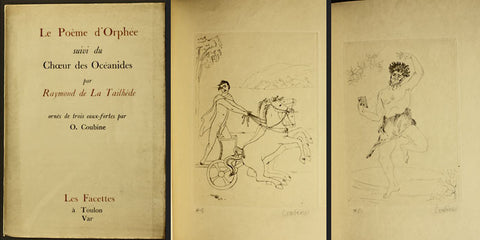 Le Poème d'Orphée
suivi du
Chœur des Océanides
par
Raymond de La Tailhède
ornés de trois eaux-fortes par
O. Coubine
Les Facettes
à Toulon
Var